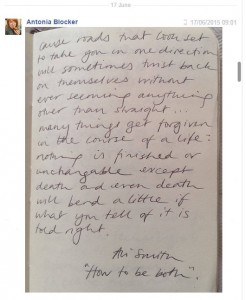 17 June
Antonia Blocker
17/06/2015 09:01
cause roads that look set
to take you in one direction
will sometimes twist back
on themselves without
ever seeming anything
other than straight...
many things get forgiven
in the course of a life:
nothing is finished or
unchangeable except
death and even death
will bend a little if
what you tell of it is
told right.
Ali Smith
"How to be both".